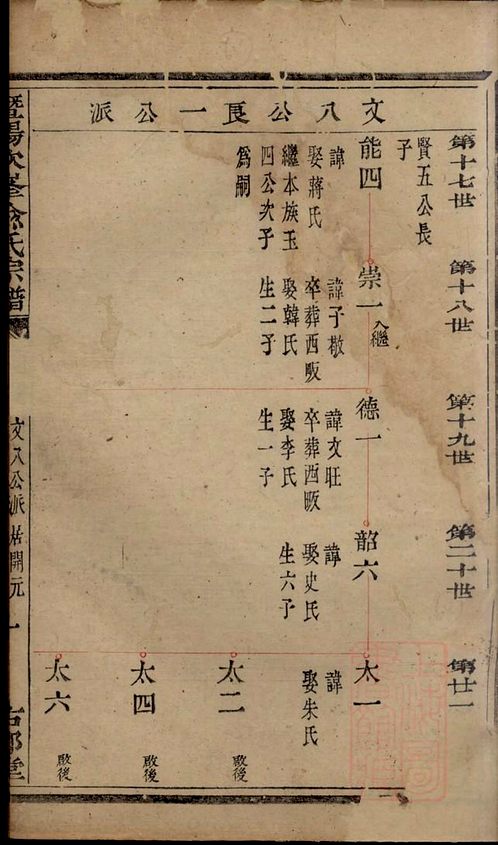 文八公良一公派
第十七世
賢五公長子
能四
諱
娶蔣氏
繼本族玉
四公次子
爲嗣
第十八世
崇一 入繼
諱子敬
卒葬西畈
娶韓氏
生二子
第十九世
德一
諱文旺
卒葬西畈
娶李氏
生一子
第二十世
韶六
諱
娶史氏
生六子
第廿一
太一
諱
娶朱氏
太二
敗後
太四
敗後
太六
敗後
暨陽次峯俞氏宗譜
文八公派居開元
一